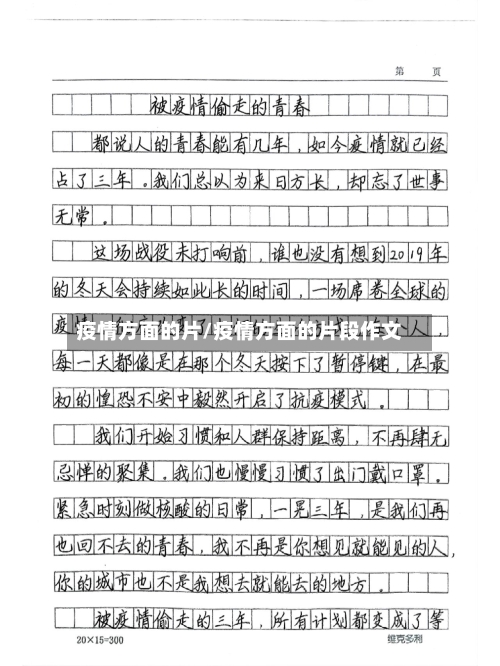 第 页
被疫情偷走的青春
都说人的青春能有几年，如今疫情就已经
占了三年。我们总以为来日方长，却忘了世事
无常。
这场战役未打响前，谁也没有想到2019年
的冬天会持续如此长的时间，一场席卷全球的
疫情
人，
疫情方面的片/疫情方面的片段作文
每一天都像是在那个冬天按下了暂停键，在最
初的惶恐不安中毅然开启了抗疫模式。
我们开始习惯和人群保持距离，不再肆无
忌惮的聚集。我们也慢慢习惯了出门戴口罩。
紧急时刻做核酸的日常，一晃三年，是我们再
也回不去的青春，我不再是你想见就能见的人，
你的城市也不是我想去就能去的地方。
被疫情偷走的三年，所有计划都变成了等
20×15=300 维克多利